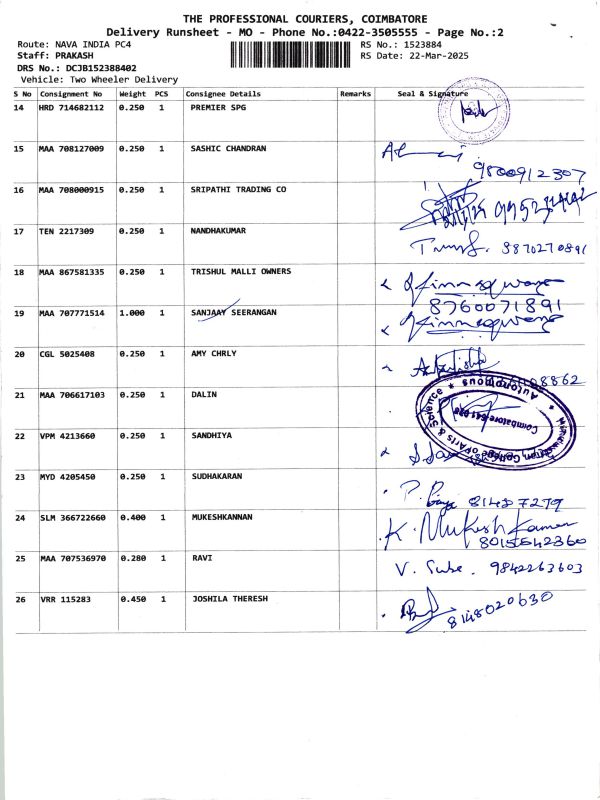 THE PROFESSIONAL COURIERS, COIMBATORE
Delivery Runsheet - MO - Phone No.:0422-3505555 - Page No.:2
Route: NAVA INDIA PC4
RS No.: 1523884
Staff: PRAKASH
RS Date: 22-Mar-2025
DRS No.: DCJB152388402
Vehicle: Two Wheeler Delivery
S No Consignment No Weight PCS Consignee Details Remarks Seal & Signature
14 HRD 714682112 0.250 1 PREMIER SPG
15 MAA 708127009 0.250 1 SASHIC CHANDRAN
9800912307
16 MAA 708000915 0.250 1 SRIPATHI TRADING CO
17 TEN 2217309 0.250 1 NANDHAKUMAR
9870270891
18 MAA 867581335 0.250 1 TRISHUL MALLI OWNERS
8760071891
19 MAA 707771514 1.000 1 SANJAAY SEERANGAN
20 CGL 5025408 0.250 1 AMY CHRLY
21 MAA 706617103 0.250 1 DALIN
Autonomous
College of Arts & Science
Coimbatore-641 028
22 VPM 4213660 0.250 1 SANDHIYA
23 MYD 4205450 0.250 1 SUDHAKARAN
24 SLM 366722660 0.400 1 MUKESHKANNAN
K. Mukesh Kannan
8015542360
25 MAA 707536970 0.280 1 RAVI
V. Sube. 9842263603
26 VRR 115283 0.450 1 JOSHILA THERESH
8148020630